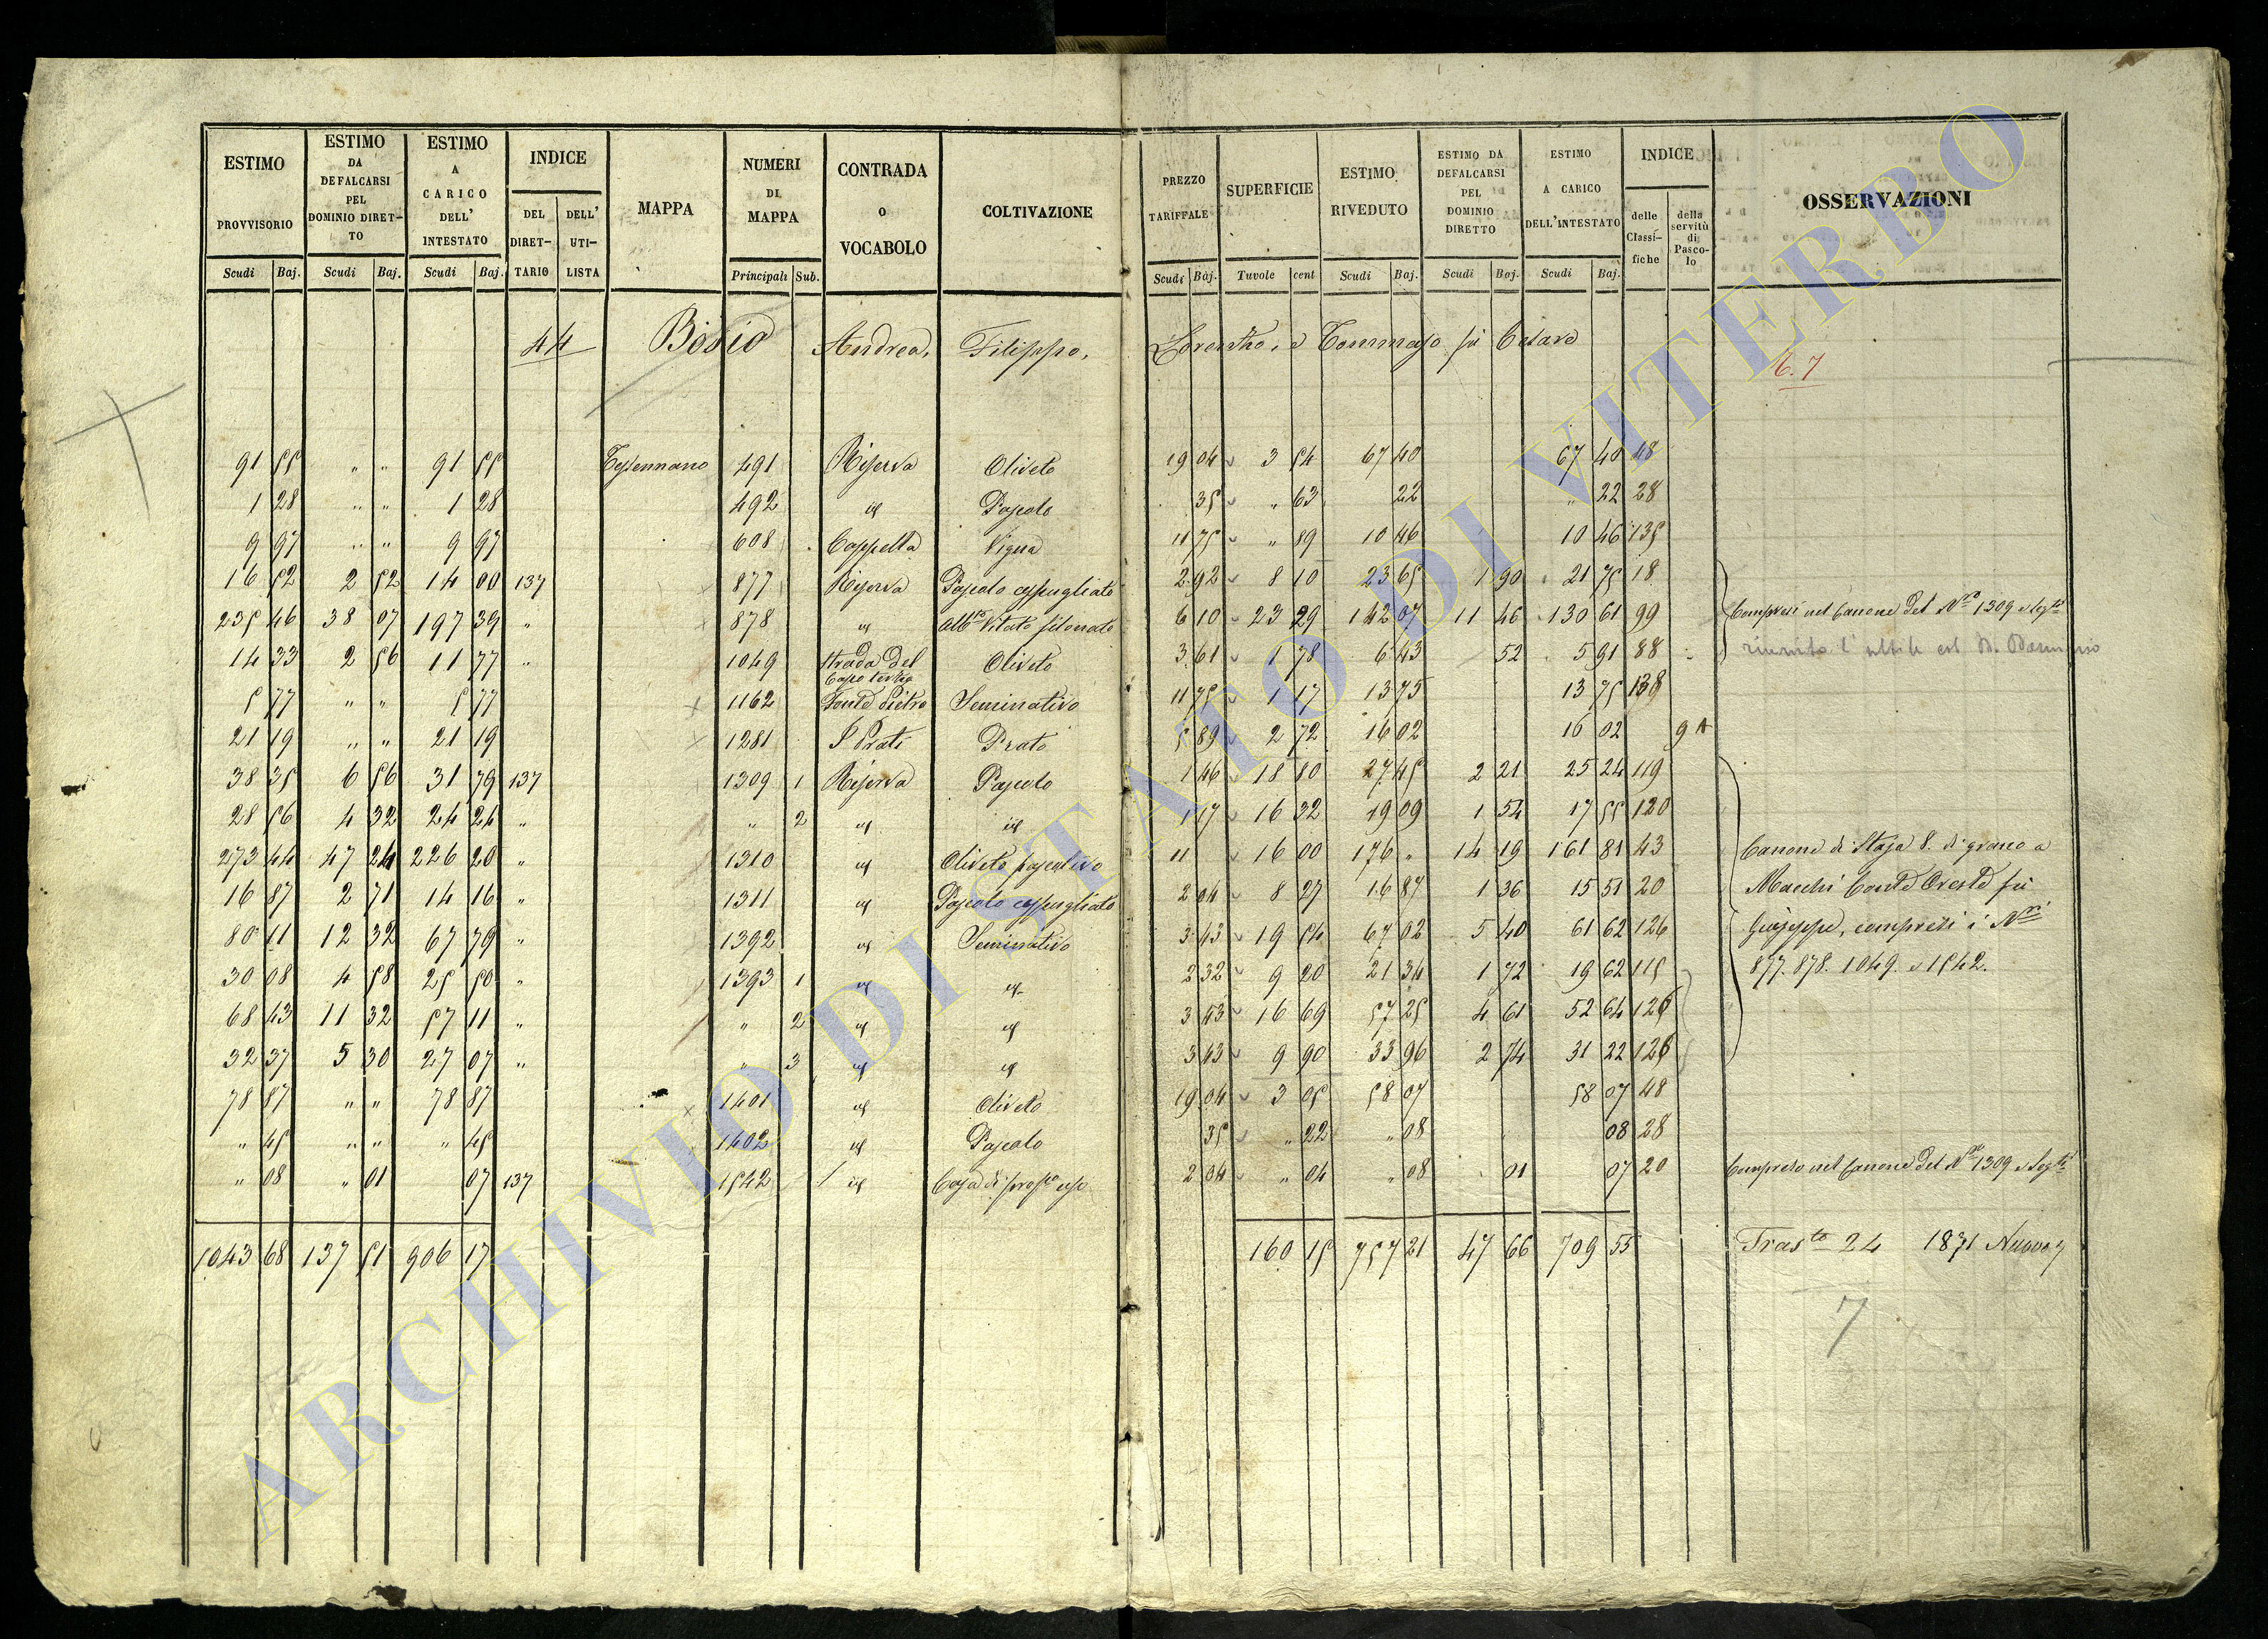 ESTIMO PROVVISORIO | ESTIMO DA DEFALCARSI PEL DOMINIO DIRET- TO | ESTIMO A CARICO DELL' INTESTATO | INDICE DEL DIRET- TARIO | DELL' UTI- LISTA | MAPPA | NUMERI DI MAPPA | CONTRADA o VOCABOLO | COLTIVAZIONE | PREZZO TARIFFALE | SUPERFICIE | ESTIMO RIVEDUTO | ESTIMO DA DEFALCARSI PEL DOMINIO DIRETTO | ESTIMO A CARICO DELL'INTESTATO | INDICE delle Classi- fiche | della servitù di Pasco- lo | OSSERVAZIONI
Scudi Baj. | Scudi Baj. | Scudi Baj. | Principali Sub. | Scudi Baj. | Tavole cent | Scudi Baj. | Scudi Baj. | Scudi Baj.
44 Bosio Andrea, Filippo, Lorenzo, e Tommaso fu Cesare
6.7
91 55 " " 91 55 Tessennano 491 Riserva Oliveto 19 04 3 54 67 40 67 40 48
1 28 " " 1 28 492 id Pascolo 35 " 63 22 " 22 28
9 97 " " 9 97 608 Cappella Vigna 11 75 " 89 10 46 10 46 135
16 52 2 52 14 00 137 877 Riserva Pascolo cespugliato 2 92 8 10 23 65 1 90 21 75 18
235 46 38 07 197 39 " 878 id Alb.to Vitato filonato 6 10 23 29 142 07 11 46 130 61 99 Compresi nel Canone del N.ro 1309 e seg.ti
14 33 2 56 11 77 " 1049 Strada del Oliveto 3 61 1 78 6 43 52 5 91 88 riunito l'utile col
5 77 " " 5 77 1162 Seminativo 11 75 1 17 13 75 13 75 138
21 19 " " 21 19 1281 I Prati Prato 5 89 2 72 16 02 16 02 9 A
38 35 6 56 31 79 137 1309 1 Riserva Pascolo 1 46 18 80 27 45 2 21 25 24 119
28 56 4 32 24 24 " " 2 id id 1 17 16 32 19 09 1 54 17 55 120
273 44 47 24 226 20 " 1310 id Oliveto pascolivo 11 16 00 176 " 14 19 161 81 43 Canone di Staja 8. di grano a
16 87 2 71 14 16 " 1311 id Pascolo cespugliato 2 04 8 27 16 87 1 36 15 51 20 Macchi Conte Oreste fu
80 11 12 32 67 79 " 1392 id Seminativo 3 43 19 54 67 02 5 40 61 62 126 Giuseppe, compresi i N.ri
30 08 4 58 25 50 " 1393 1 id id 2 32 9 20 21 34 1 72 19 62 115 877. 878. 1049. e 1542.
68 43 11 32 57 11 " " 2 id id 3 43 16 69 57 25 4 61 52 64 126
32 37 5 30 27 07 " " 3 id id 3 43 9 90 33 96 2 74 31 22 126
78 87 " " 78 87 1401 id Oliveto 19 04 3 05 58 07 58 07 48
" 45 " " " 45 1402 id Pascolo 35 " 22 " 08 08 28
" 08 " 01 07 137 1542 1 id Casa di prop.o uso 2 04 " 04 " 08 01 07 20 Compreso nel Canone del N.ro 1309 e seg.ti
1043 68 137 51 906 17 160 15 757 21 47 66 709 55 Tras.to 24 1871 Nuovo 7
7
ARCHIVIO DI STATO DI VITERBO